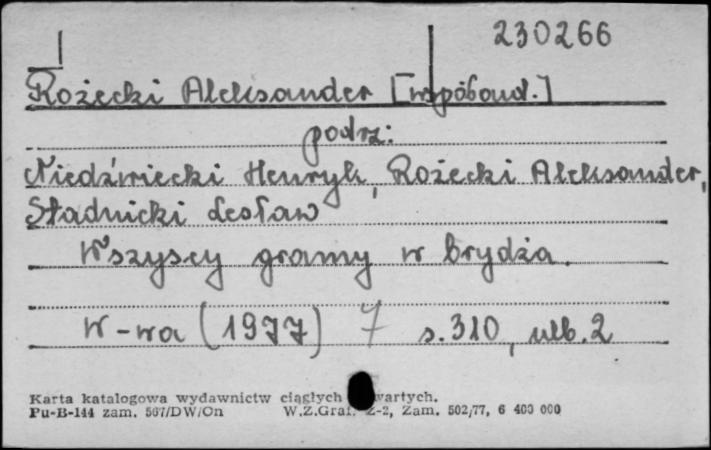 230266
Rożecki Aleksander [współaut.]
podrz:
Niedźwiecki Henryk, Rożecki Aleksander,
Stadnicki Lesław
Wszyscy gramy w brydża.
W-wa (1977) 7 s. 310, nlb. 2
Karta katalogowa wydawnictw ciągłych wartych.
Pu-B-144 zam. 567/DW/On W.Z.Graf. Z-2, Zam. 502/77, 6 400 000